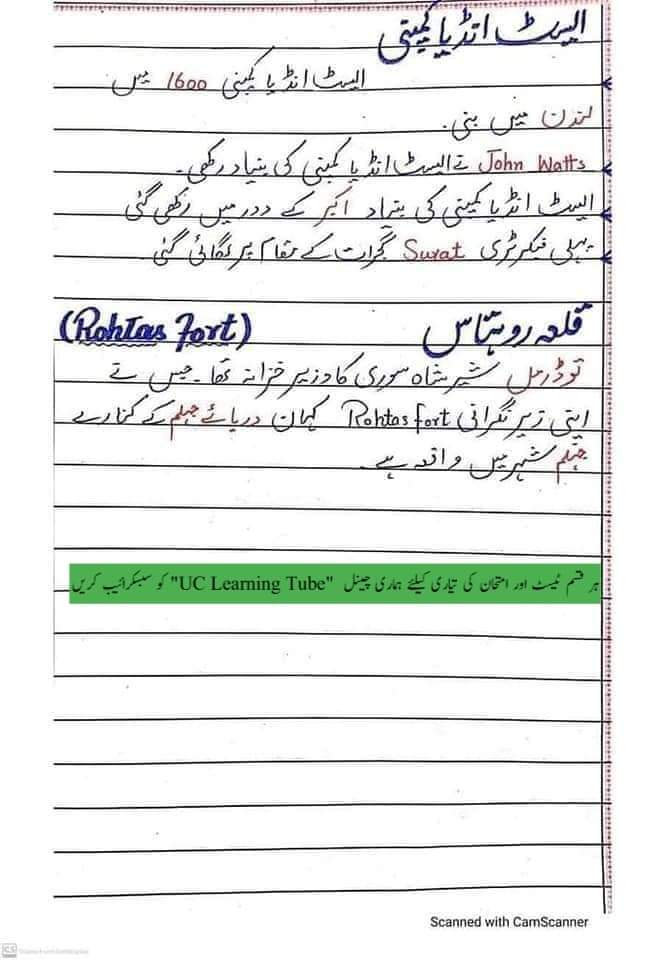 ایسٹ انڈیا کمپنی
ایسٹ انڈیا کمپنی 1600 میں
لندن میں بنی۔
John Watts نے ایسٹ انڈیا کمپنی کی بنیاد رکھی۔
ایسٹ انڈیا کمپنی کی بنیاد اکبر کے دور میں رکھی گئی
پہلی فیکٹری Surat گجرات کے مقام پر لگائی گئی
قلعہ روہتاس (Rohtas Fort)
توڈرمل شیر شاہ سوری کا وزیر خزانہ تھا۔ جس نے
اپنی زیر نگرانی Rohtas fort دریائے جہلم کے کنارے
جہلم شہر میں واقع ہے۔
ہر قسم ٹیسٹ اور امتحان کی تیاری کیلئے ہماری چینل "UC Learning Tube" کو سبسکرائیب کریں
Scanned with CamScanner
CS